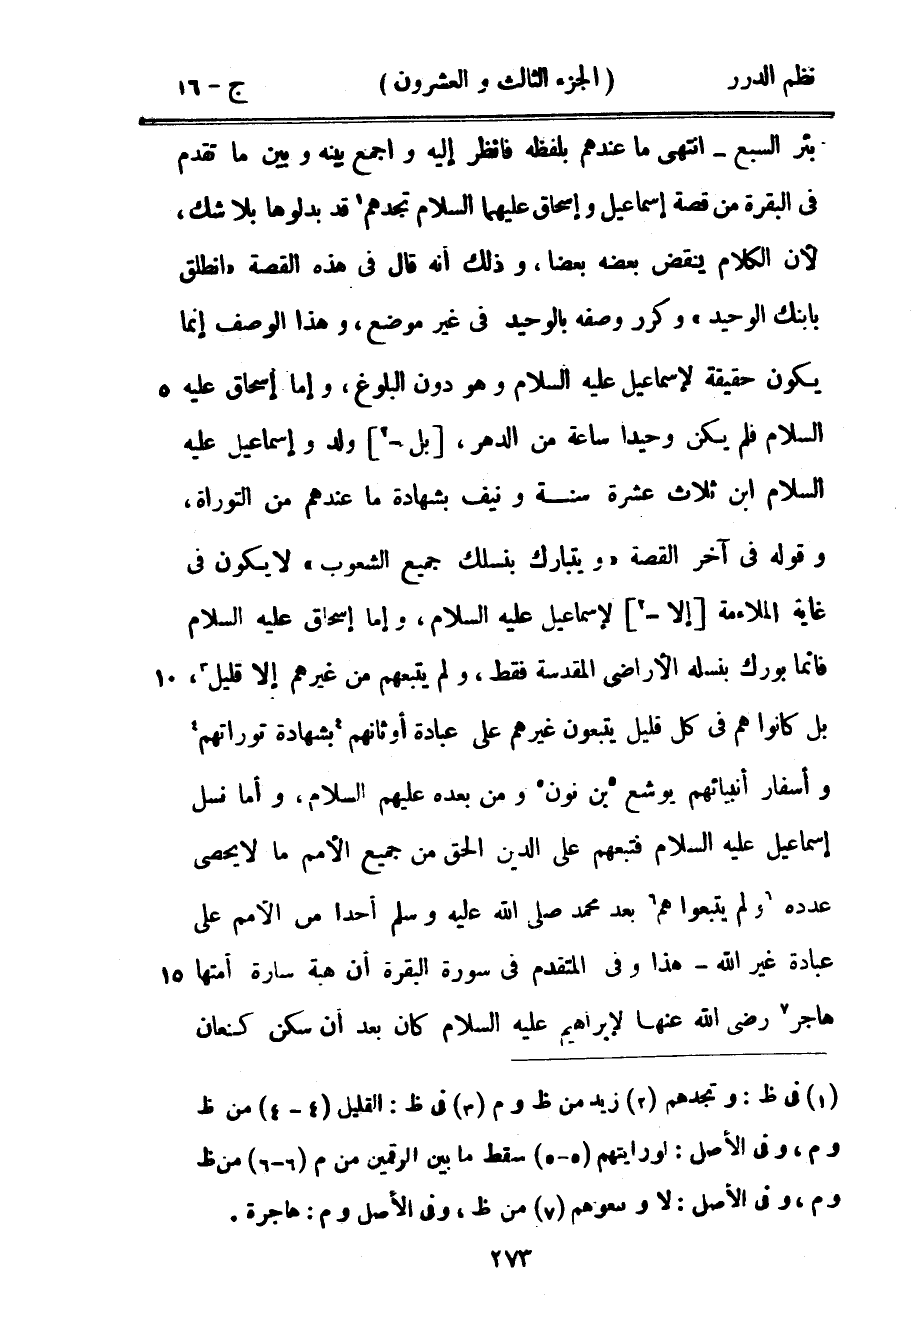 نظم الدرر ( الجزء الثالث و العشرون ) ج - ١٦
بئر السبع - انتهى ما عندهم بلفظه فانظر إليه و اجمع بينه و بين ما تقدم
فى البقرة من قصة إسماعيل و إسحاق عليهما السلام تجدهم١ قد بدلوها بلا شك ،
لأن الكلام ينقض بعضه بعضا ، و ذلك أنه قال فى هذه القصة «انطلق
بابنك الوحيد » و كرر وصفه بالوحيد فى غير موضع ، و هذا الوصف إنما
يكون حقيقة لإسماعيل عليه السلام و هو دون البلوغ ، و إما إسحاق عليه ٥
السلام فلم يكن وحيدا ساعة من الدهر ، [ بل -٢ ] ولد و إسماعيل عليه
السلام ابن ثلاث عشرة سنة و نيف بشهادة ما عندهم من التوراة ،
و قوله فى آخر القصة « و يتبارك بنسلك جميع الشعوب » لا يكون فى
غاية الملاءمة [ إلا -٢ ] لإسماعيل عليه السلام ، و إما إسحاق عليه السلام
فانما بورك بنسله الأراضى المقدسة فقط ، و لم يتبعهم من غيرهم إلا قليل٣ ، ١٠
بل كانوا هم فى كل قليل يتبعون غيرهم على عبادة أوثانهم ٤بشهادة توراتهم٤
و أسفار أنبيائهم يوشع ٥بن نون٥ و من بعده عليهم السلام ، و أما نسل
إسماعيل عليه السلام فتبعهم على الدين الحق من جميع الأمم ما لا يحصى
عدده ٦و لم يتبعوا هم٦ بعد محمد صلى الله عليه و سلم أحدا من الأمم على
عبادة غير الله - هذا و فى المتقدم فى سورة البقرة أن هبة سارة أمتها ١٥
هاجر٧ رضى الله عنها لإبراهيم عليه السلام كان بعد أن سكن كنعان
(١) فى ظ : و تجدهم (٢) زيد من ظ و م (٣) فى ظ : القليل (٤ - ٤) من ظ
و م ، و فى الأصل : اورايتهم (٥-٥) سقط ما بين الرقمين من م (٦-٦) من ظ
و م ، و فى الأصل : لا و (٧) من ظ ، و فى الأصل و م : هاجرة .
٢٧٣